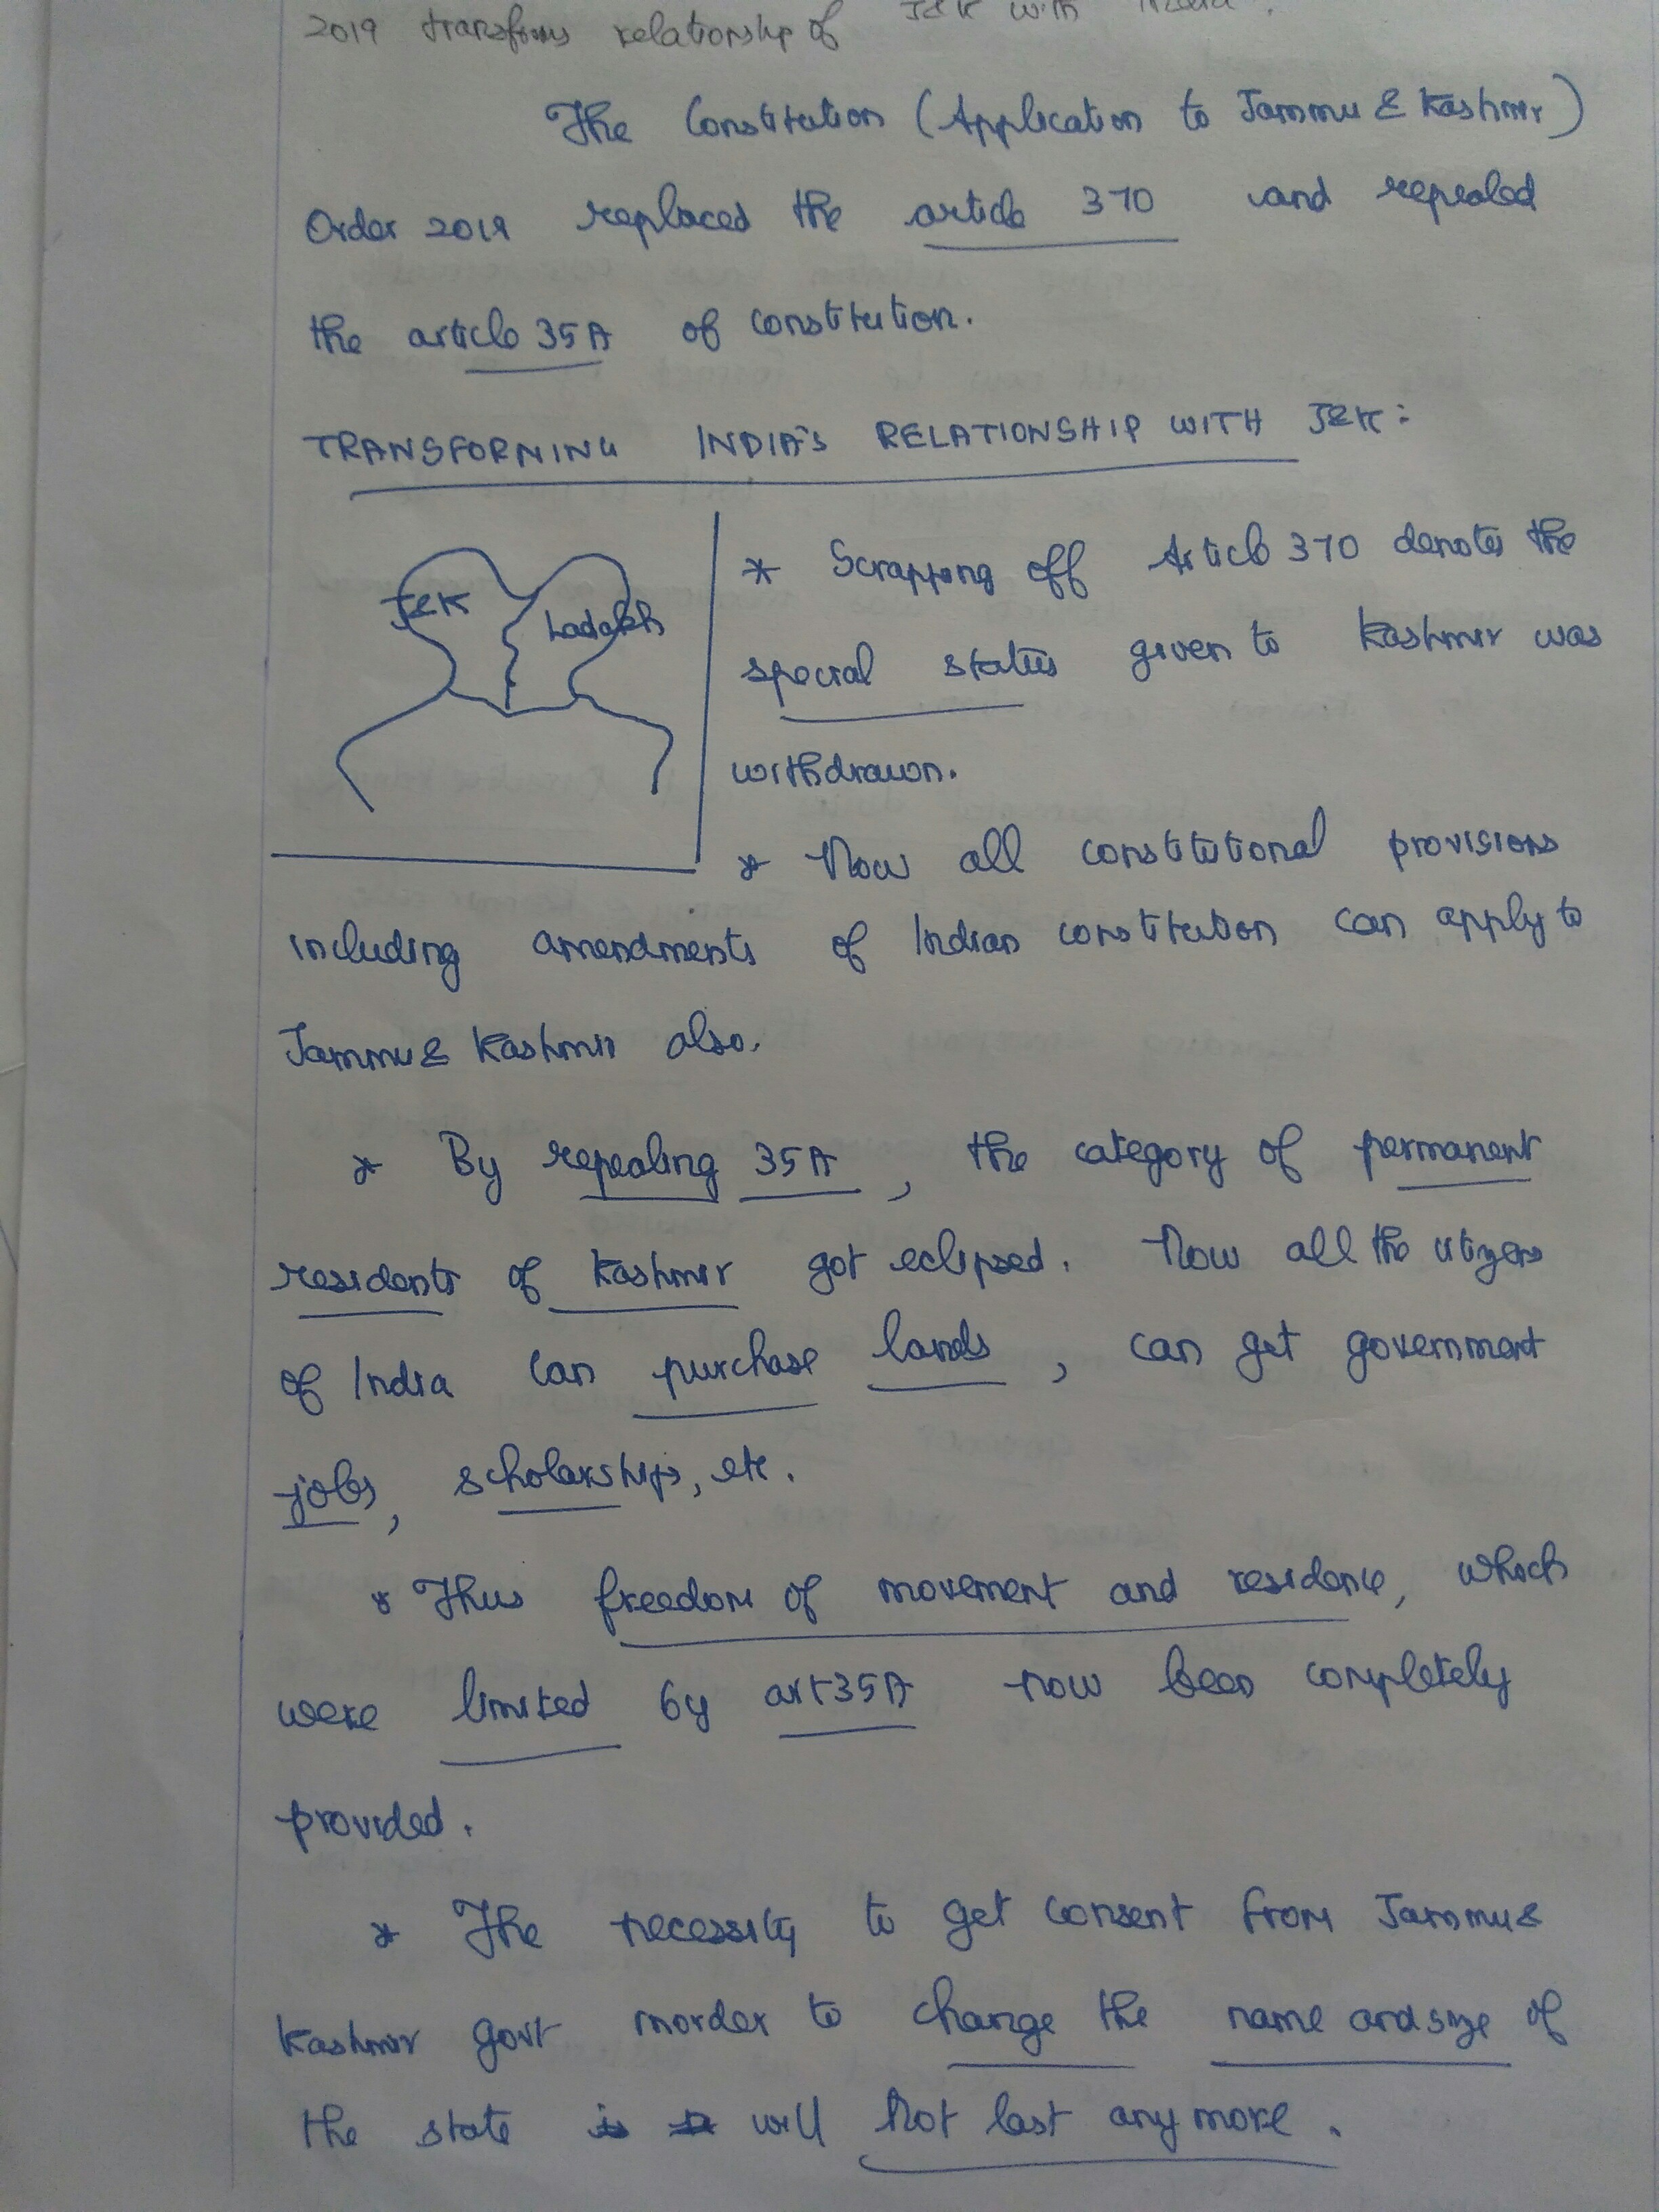 2019 transforms relationship of J&K with India.
The Constitution (Application to Jammu & Kashmir)
Order 2019 replaced the article 370 and repealed
the article 35A of constitution.
TRANSFORMING INDIA'S RELATIONSHIP WITH J&K:
J&K
Ladakh
* Scrapping off Article 370 denotes the
special status given to Kashmir was
withdrawn.
* Now all constitutional provisions
including amendments of Indian constitution can apply to
Jammu & Kashmir also.
* By repealing 35A, the category of permanent
residents of Kashmir got eclipsed. Now all the citizens
of India can purchase lands, can get government
jobs, scholarships, etc.
* Thus freedom of movement and residence, which
were limited by art 35A now been completely
provided.
* The necessity to get consent from Jammu &
Kashmir govt inorder to change the name and size of
the state will not last anymore.